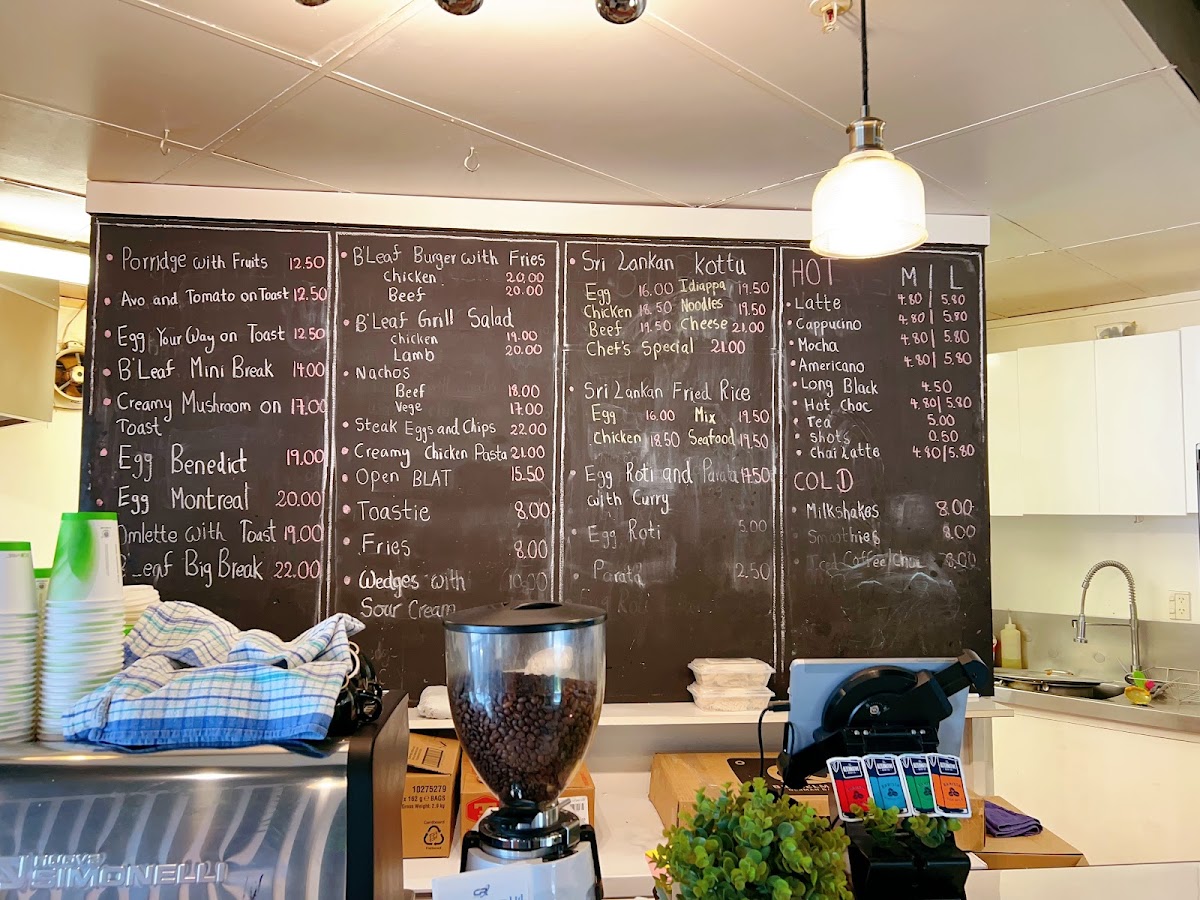 Porridge with Fruits 12.50
Avo and Tomato on Toast 12.50
Egg Your Way on Toast 12.50
B'Leaf Mini Break 14.00
Creamy Mushroom on 17.00
Toast
Egg Benedict 19.00
Egg Montreal 20.00
Omlette with Toast 19.00
B'Leaf Big Break 22.00
B'Leaf Burger with Fries
Chicken 20.00
Beef 20.00
B'Leaf Grill Salad
Chicken 19.00
Lamb 20.00
Nachos
Beef 18.00
Vege 17.00
Steak Eggs and Chips 22.00
Creamy Chicken Pasta 21.00
Open BLAT 15.50
Toastie 8.00
Fries 8.00
Wedges with 10.00
Sour Cream
Sri Lankan Kottu
Egg 16.00 Idiappa 19.50
Chicken 18.50 Noodles 19.50
Beef 19.50 Cheese 21.00
Chef's Special 21.00
Sri Lankan Fried Rice
Egg 16.00 Mix 19.50
Chicken 18.50 Seafood 19.50
Egg Roti and Parata 17.50
with Curry
Egg Roti 5.00
Parata 2.50
HOT M | L
Latte 4.80 | 5.80
Cappucino 4.80 | 5.80
Mocha 4.80 | 5.80
Americano 4.80 | 5.80
Long Black 4.50
Hot Choc 4.80 | 5.80
Tea 5.00
Shots 0.50
Chai Latte 4.80 | 5.80
COLD
Milkshakes 8.00
Smoothies 8.00
Iced Coffee/Choc 8.00
10275279
x 162 g e BAGS
Gross Weight: 2.9 kg
nuova
SIMONELLI